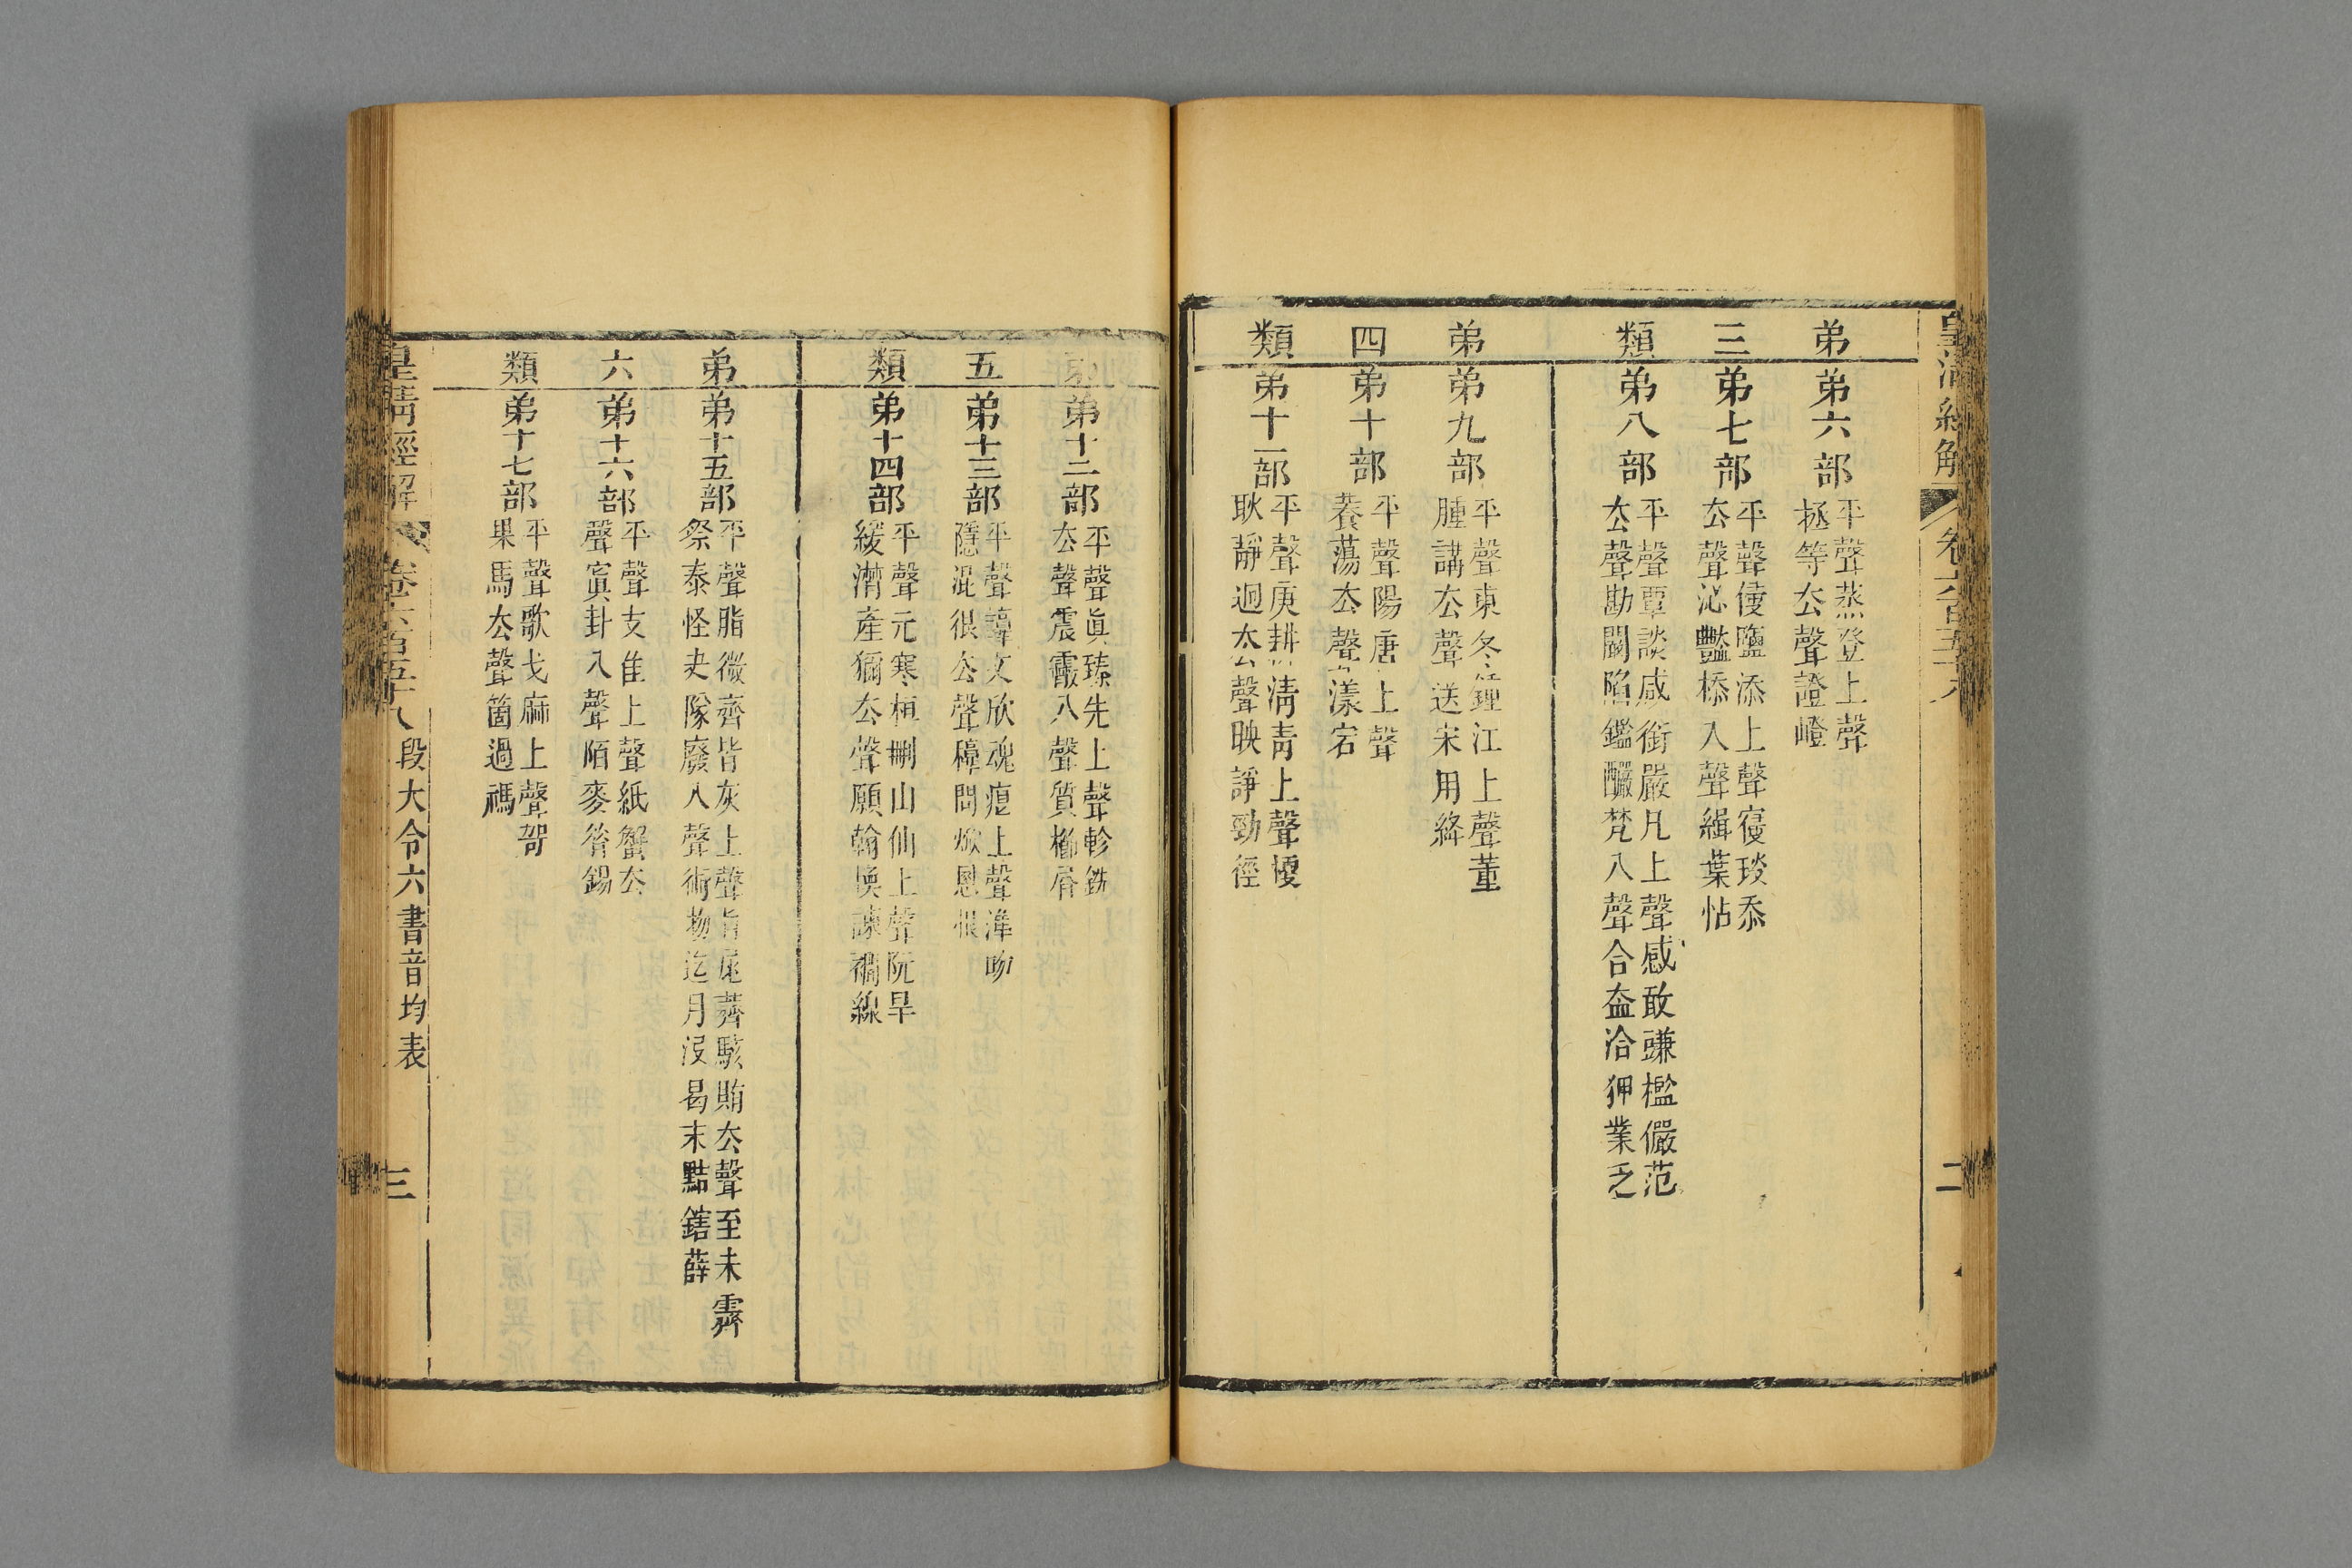 弟三類
弟六部
平聲蒸登上聲
拯等厺聲證嶝
弟七部
平聲侵鹽添上聲寑琰忝
厺聲沁豔㮇入聲緝葉怗
弟八部
平聲覃談咸銜嚴凡上聲感敢豏檻儼范
厺聲勘闞陷鑑釅梵入聲合盍洽狎業乏
弟四類
弟九部
平聲東冬鍾江上聲董
腫講厺聲送宋用絳
弟十部
平聲陽唐上聲
養蕩厺聲漾宕
弟十一部
平聲庚耕淸靑上聲梗
耿靜迥厺聲映諍勁徑
二
五類
弟十二部
平聲眞臻先上聲軫銑
厺聲震霰入聲質櫛屑
弟十三部
平聲諄文欣魂痕上聲準吻
隱混很厺聲稕問焮慁恨
弟十四部
平聲元寒桓刪山仙上聲阮旱
緩潸產獮厺聲願翰換諫襉線
弟六類
弟十五部
平聲脂微齊皆灰上聲旨尾薺駭賄厺聲至未霽
祭泰怪夬隊廢入聲術物迄月沒曷末黠鎋薛
弟十六部
平聲支佳上聲紙蟹厺
聲寘卦入聲陌麥昔錫
弟十七部
平聲歌戈麻上聲哿
果馬厺聲箇過禡
皇清經解 卷六百五十八 段大令六書音均表 三